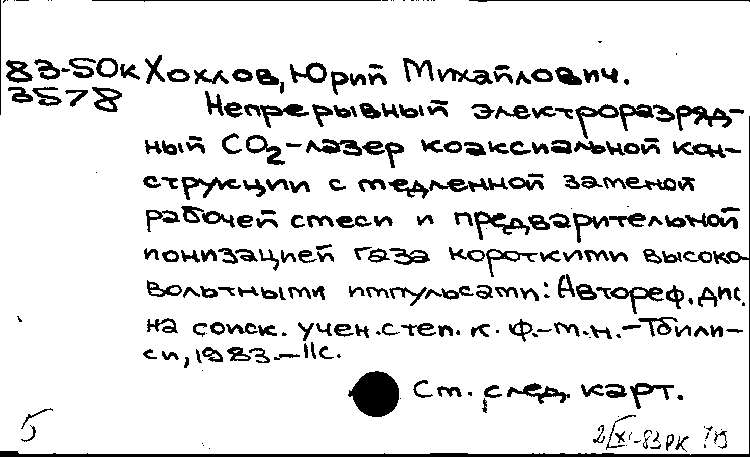 83-50к Хохлов, Юрий Михайлович.
3578 Непрерывный электроразряд-
ный CO2-лазер коаксиальной кон-
струкции с медленной заменой
рабочей смеси и предварительной
ионизацией газа короткими высоко-
вольтными импульсами: Автореф. дис.
на соиск. учен. степ. к. ф.-м. н. - Тбили-
си, 1983. - 11с.
См. след. карт.
5 2/XI-83 РК